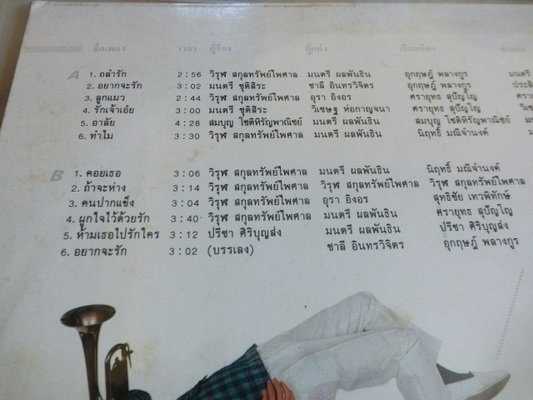 ชื่อเพลง เวลา ผู้ร้อง ผู้แต่ง เรียบเรียง
A 1. ถลำรัก 2:56 วิรุฬ สกุลทรัพย์ไพศาล มนตรี ผลพันธิน อุกฤษฎ์ พลางกูร มนตรี
2. อยากจะรัก 3:02 มนตรี ชุติสิระ ชาลี อินทรวิจิตร อุกฤษฎ์ พลางกูร
3. ลูกแมว 2:44 วิรุฬ สกุลทรัพย์ไพศาล อุรา อิงอร ศรายุทธ สุปัญโญ
4. รักเจ้าเอ๋ย 3:00 มนตรี ชุติสิระ วิเศษฐ ห่อกาญจนา ศรายุทธ สุปัญโญ
5. อาลัย 4:28 สมบุญ โชติหิรัญพาณิชย์ มนตรี ผลพันธิน สมบุญ โชติหิรัญพาณิชย์
6. ทำไม 3:30 วิรุฬ สกุลทรัพย์ไพศาล มนตรี ผลพันธิน นิฤทธิ์ มณีจำนงค์
B 1. คอยเธอ 3:06 วิรุฬ สกุลทรัพย์ไพศาล มนตรี ผลพันธิน นิฤทธิ์ มณีจำนงค์
2. ถ้าจะห่าง 3:14 วิรุฬ สกุลทรัพย์ไพศาล วิรุฬ สกุลทรัพย์ไพศาล วิรุฬ สกุลทรัพย์ไพศาล
3. คนปากแข็ง 3:04 วิรุฬ สกุลทรัพย์ไพศาล อุรา อิงอร สุทธิชัย เทวพิทักษ์
4. ผูกใจไว้ด้วยรัก 3:40 วิรุฬ สกุลทรัพย์ไพศาล มนตรี ผลพันธิน ศรายุทธ สุปัญโญ
5. ห้ามเธอไปรักใคร 3:12 ปรีชา ศิริบุญส่ง มนตรี ผลพันธิน ปรีชา ศิริบุญส่ง
6. อยากจะรัก 3:02 (บรรเลง) ชาลี อินทรวิจิตร อุกฤษฎ์ พลางกูร